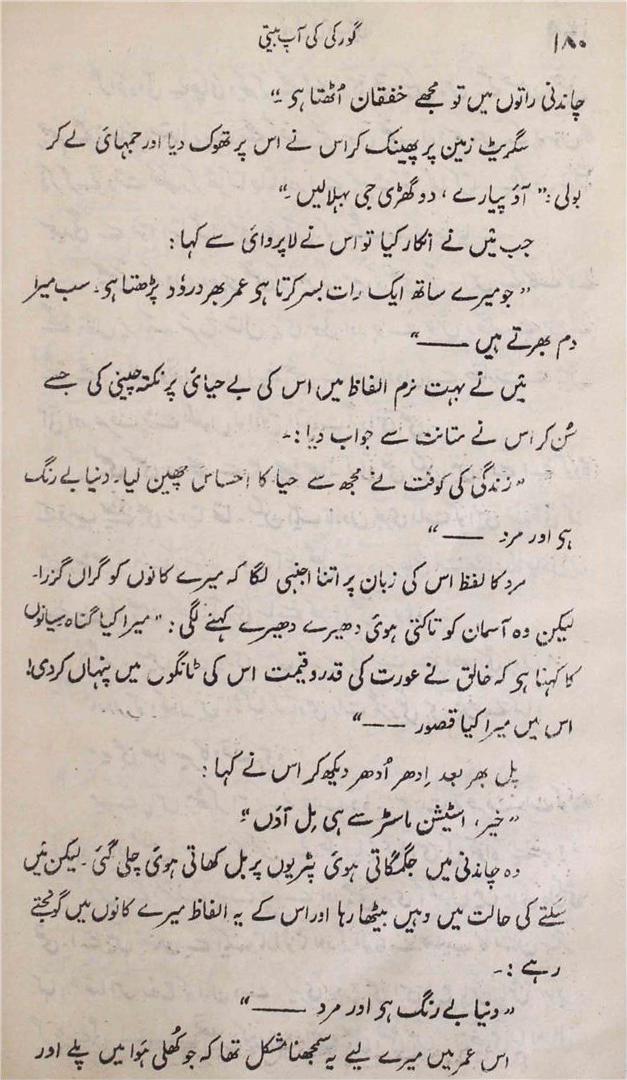 ۱۸۰
گورکی کی آپ بیتی
چاندنی راتوں میں تو مجھے خفقان اُٹھتا ہی ۔"
سگریٹ زمین پر پھینک کر اس نے اس پر تھوک دیا اور جمہائی لے کر
بولی: " آؤ پیارے ، دو گھڑی جی بہلالیں ۔"
جب میں نے انکار کیا تو اس نے لاپروائی سے کہا :
" جو میرے ساتھ ایک رات بسر کرتا ہی عمر بھر درؤد پڑھتا ہو۔ سب میرا
دم بھرتے ہیں ——"
میں نے بہت نرم الفاظ میں اس کی بے حیائی پر نکتہ چینی کی جسے
سُن کر اس نے متانت سے جواب دیا :۔
" زندگی کی کوفت نے مجھ سے حیا کا احساس چھین لیا۔ دنیا بے رنگ
ہی اور مرد ——"
مرد کا لفظ اس کی زبان پر اتنا اجنبی لگا کہ میرے کانوں کو گراں گزرا۔
لیکن وہ آسمان کو تاکتی ہوئی دھیرے دھیرے کہنے لگی : " میرا کیا گناہ سیانوں
کا کہنا ہی کہ خالق نے عورت کی قدر و قیمت اس کی ٹانگوں میں پنہاں کردی!
اس میں میرا کیا قصور ——"
پل بھر بعد اِدھر اُدھر دیکھ کر اس نے کہا :
" خیر، اسٹیشن ماسٹر سے ہی مِل آؤں "
وہ چاندنی میں جگمگاتی ہوئی پٹریوں پر بل کھاتی ہوئی چلی گئی ۔ لیکن میں
سکتے کی حالت میں وہیں بیٹھا رہا اور اس کے یہ الفاظ میرے کانوں میں گونجتے
رہے :۔
" دنیا بے رنگ ہی اور مرد ——"
اس عمر میں میرے لیے یہ سمجھنا مشکل تھا کہ جو کُھلی ہوا میں پلے اور